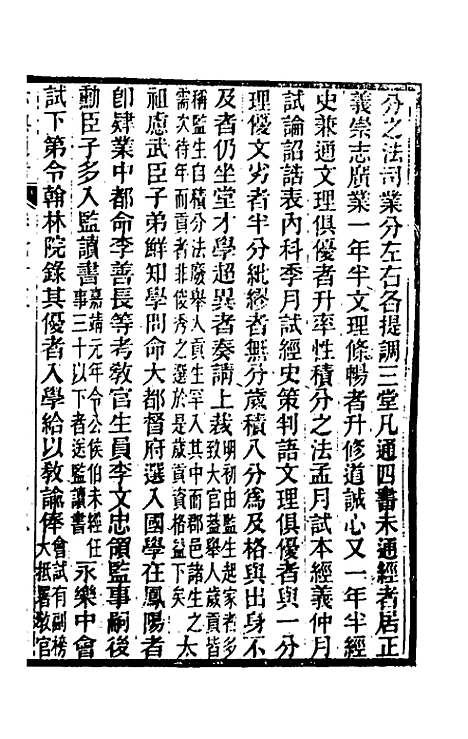 分之法司業分左右各提調三堂凡通四書未通經者居正
義崇志廣業一年半文理條暢者升修道誠心又一年半經
史兼通文理俱優者升率性積分之法孟月試本經義仲月
試論詔誥表內科季月試經史策判語文理俱優者與一分
理優文劣者半分紕繆者無分歲積八分爲及格與出身不
及者仍坐堂才學超異者奏請上裁明初由監生起家者多致大官蓋舉人歲貢皆
稱監生自積分法廢舉人貢生罕入其中而郡邑諸生之
需次待年而貢者非俊秀之選於是歲貢資格益下矣太
祖慮武臣子弟鮮知學問命大都督府選入國學在鳳陽者
卽肄業中都命李善長等考敎官生員李文忠領監事嗣後
勳臣子多入監讀書嘉靖元年令公侯伯未經任事三十以下者送監讀書永樂中會
試下第令翰林院錄其優者入學給以敎諭俸會試有副榜大抵署敎官